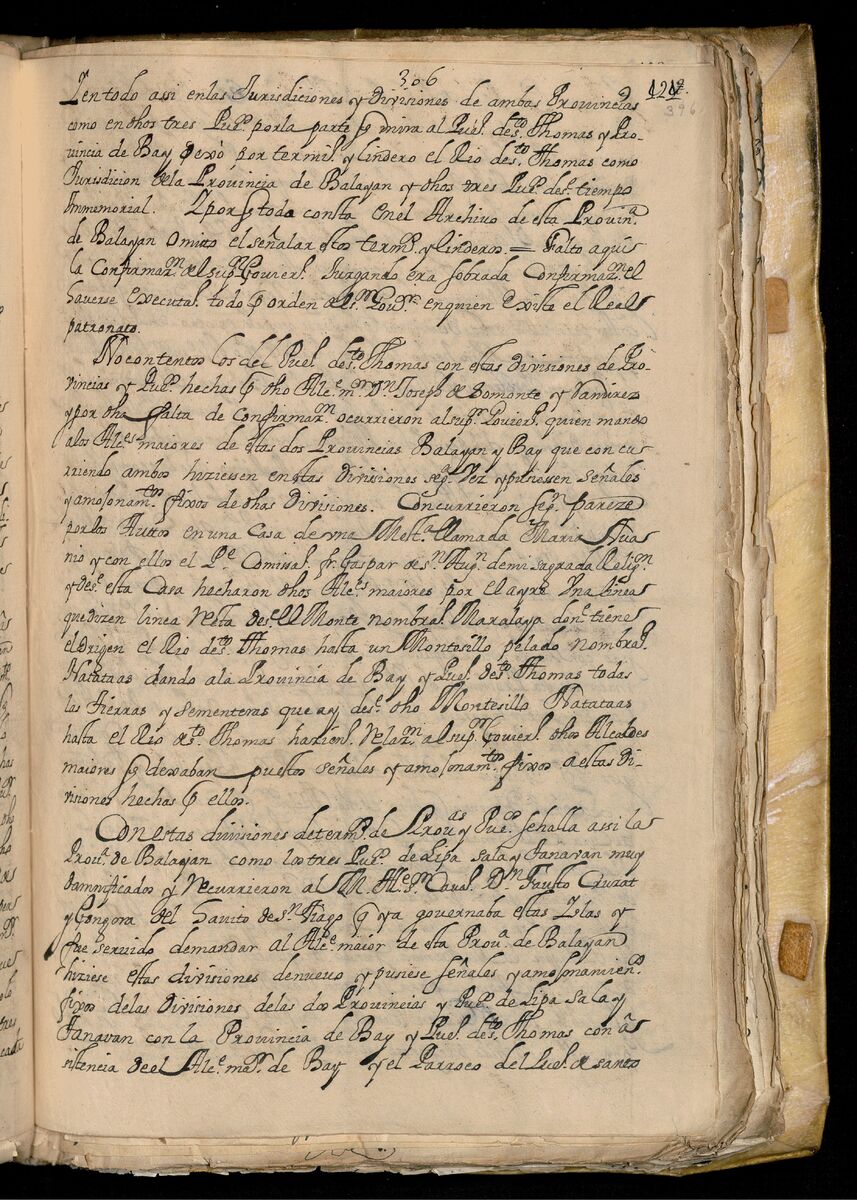 306
121
396
Y en todo assi en las Jurisdiciones y Divisiones de ambas Provincias
como en dhos tres Pu.s por la parte q mira al Puel. de s.to Thomas y Pro-
vincia de Bay fixò por term.s y lindero el Rio de s.to Thomas como
Jurisdicion de la Provincia de Balayan y dhos tres Pu.s des.e tiempo
Immemorial. Y por q todo consta en el Archivo de esta Provin.a
de Balayan Omitto el señalar estos term.s y linderos = Falto aqui
la Confirmaz.n del sup.or Govier.o Jusgando era sobrada Confirmaz.n el
haverse executad.o todo p orden del s.or Gov.or en quien existe el Real
patronato.
No contentos los del Puel. de s.to Thomas con estas Divisiones de Pro-
vincias y Pu.s hechas p dho Alc.e m.r D.n Joseph de Somonte y Ramirez
y por dha falta de Confirmaz.n ocurrieron al sup.or Govier.o quien mando
a los Alc.es maiores de estas dos Provincias Balayan y Bay que con cu-
rriendo ambos hiziessen en estas Divisiones seg.da Vez y pusiessen señales
y amojonam.tos fixos de dhas Divisiones. Concurrieron seg.n pareze
por los Auttos en una Casa de una Mest.a llamada Maria
nio y con ellos el P.e Comissa.o fr. Gaspar de s.n Aug.n de mi sagrada Relig.n
y des.e esta Casa hecharon dhos Alc.es maiores por el ayre Vna linea
que dizen linea recta des.e el Monte nombra.o Maralaya don.e tiene
el Origen el Rio de s.to Thomas hasta un Montesillo pelado nombra.o
Natataas dando a la Provincia de Bay y Puel. de s.to Thomas todas
las tierras y sementeras que ay des.e dho Montesillo Natataas
hasta el Rio de s.to Thomas hazien.o Relaz.n al sup.or Govier.o dhos Alcaldes
maiores q dexaban puestos señales y amojonam.tos fixos a estas Di-
visiones hechas p ellos.
Con estas divisiones de term.s de Prov.as y Pue.s se halla assi la
Prov.a de Balayan como los tres Pu.s de Lipa Sala y Tanavan muy
damnificados y Recurrieron al M. Ill.e s.or Caval.o D.n Fausto Cruzat
y Gongora del havito de s.n Tiago q ya governaba estas Yslas y
fue servido de mandar al Alc.e maior de esta Prov.a de Balayan
hiziese estas divisiones de nuevo y pusiese señales y amojonamien.s
fixos de las Divisiones de las dos Provincias y Pu.s de Lipa Sala y
Tanavan con la Provincia de Bay y Puel. de s.to Thomas con as
sistencia de el Alc.e ma.r de Bay y el Parroco del Puel. de santo